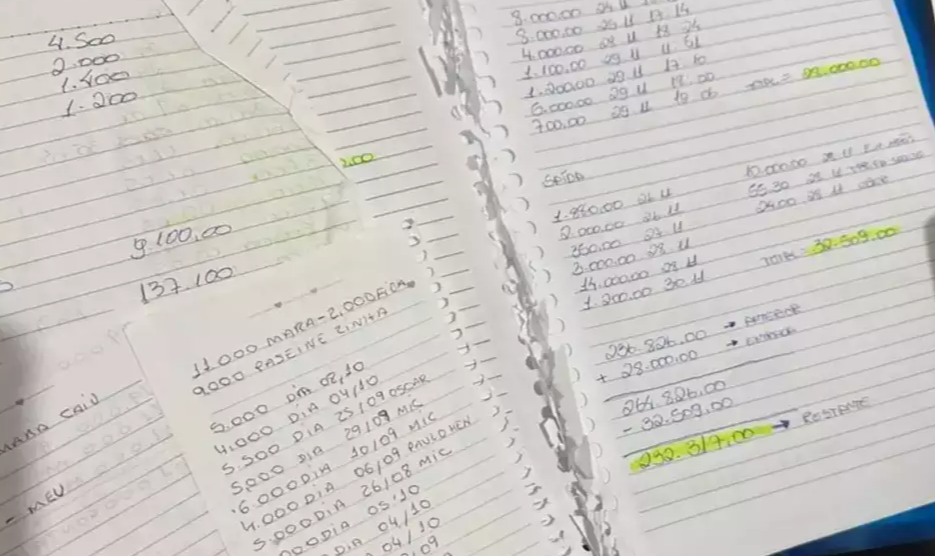 4.500
2.000
1.400
1.200
2,00
9.100,00
137.100
MARA CAIU
- MEU
11.000 MARA - 2.000 FICA
9000 RASEINE ZINHA
5.000 DIA 02/10
4.000 DIA 04/10
5.500 DIA 25/09 OSCAR
5,000 DIA 29/09 MIC
6.000 DIA 10/09 MIC
4.000 DIA 06/09 PAULO HEN
5.000 DIA 26/08 MIC
000 DIA 05/10
DIA 04/10
04/10
09
8.000.00 29 11
3.000.00 29 11 17 14
4.000.00 29 11 18 24
1.100,00 29 11 11 51
1.200,00 29 11 17 10
6.000.00 29 11 18.00
700,00 29 11 19 06
TOTAL = 28.000.00
SAÍDA
1.980,00 26 11
2.000.00 26 11
350.00 27 11
3.000.00 28 11
14.000.00 28 11
1.200.00 30 11
10.000.00 28 11
55.30 28 11
TOTAL = 32.509.00
236.826.00 → ANTERIOR
+ 28.000.00 → ENTRADA
264.826.00
- 32.509.00
232.317.00 → RESTANTE